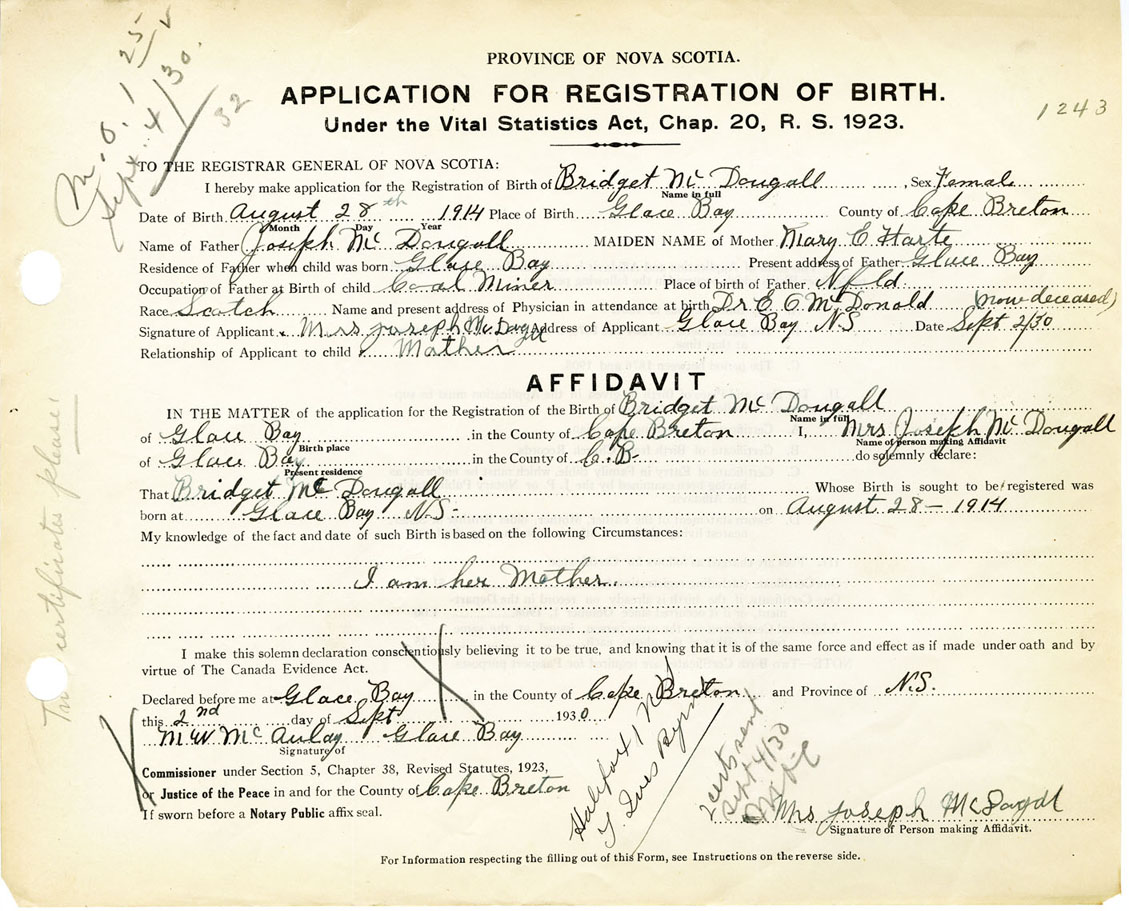 M.O. 1 25
Sept. 4/30.
32
PROVINCE OF NOVA SCOTIA.
APPLICATION FOR REGISTRATION OF BIRTH.
Under the Vital Statistics Act, Chap. 20, R. S. 1923.
1243
TO THE REGISTRAR GENERAL OF NOVA SCOTIA:
I hereby make application for the Registration of Birth of Bridget Mc Dougall, Sex Female
Name in full
Date of Birth August 28th 1914 Place of Birth Glace Bay County of Cape Breton
Month Day Year
Name of Father Joseph Mc Dougall MAIDEN NAME of Mother Mary C Harte
Residence of Father when child was born Glace Bay Present address of Father Glace Bay
Occupation of Father at Birth of child Coal Miner Place of birth of Father Nfld.
Race Scotch Name and present address of Physician in attendance at birth Dr E. O McDonald (now deceased)
Signature of Applicant Mrs Joseph Mc Dougall Address of Applicant Glace Bay NS Date Sept 2/30
Relationship of Applicant to child Mother
AFFIDAVIT
IN THE MATTER of the application for the Registration of the Birth of Bridget Mc Dougall
Name in full
of Glace Bay in the County of Cape Breton I, Mrs Joseph Mc Dougall
Birth place Name of person making Affidavit
of Glace Bay in the County of C. B- do solemnly declare:
Present residence
That Bridget Mc Dougall Whose Birth is sought to be registered was
born at Glace Bay N.S- on August 28 - 1914
My knowledge of the fact and date of such Birth is based on the following Circumstances:
I am her Mother.
I make this solemn declaration conscientiously believing it to be true, and knowing that it is of the same force and effect as if made under oath and by
virtue of The Canada Evidence Act.
Declared before me at Glace Bay in the County of Cape Breton and Province of N.S.
this 2nd day of Sept 1930
M W Mc Aulay Glace Bay
Signature of
Commissioner under Section 5, Chapter 38, Revised Statutes, 1923,
or Justice of the Peace in and for the County of Cape Breton
If sworn before a Notary Public affix seal.
Halifax
2 certs sent
Sept 4/30
Mrs Joseph McDougall
Signature of Person making Affidavit.
For Information respecting the filling out of this Form, see Instructions on the reverse side.
Two certificates please: